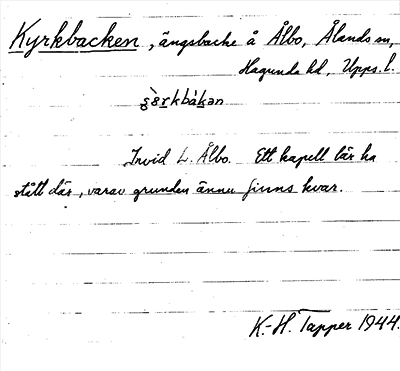 Kyrkbacken, ängsbacke å Ålbo, Ålands sn,
Hagunda hd, Upps. l.
Invid L. Ålbo. Ett kapell lär ha
stått där, varav grunden ännu finns kvar.
K.-H. Tapper 1944.